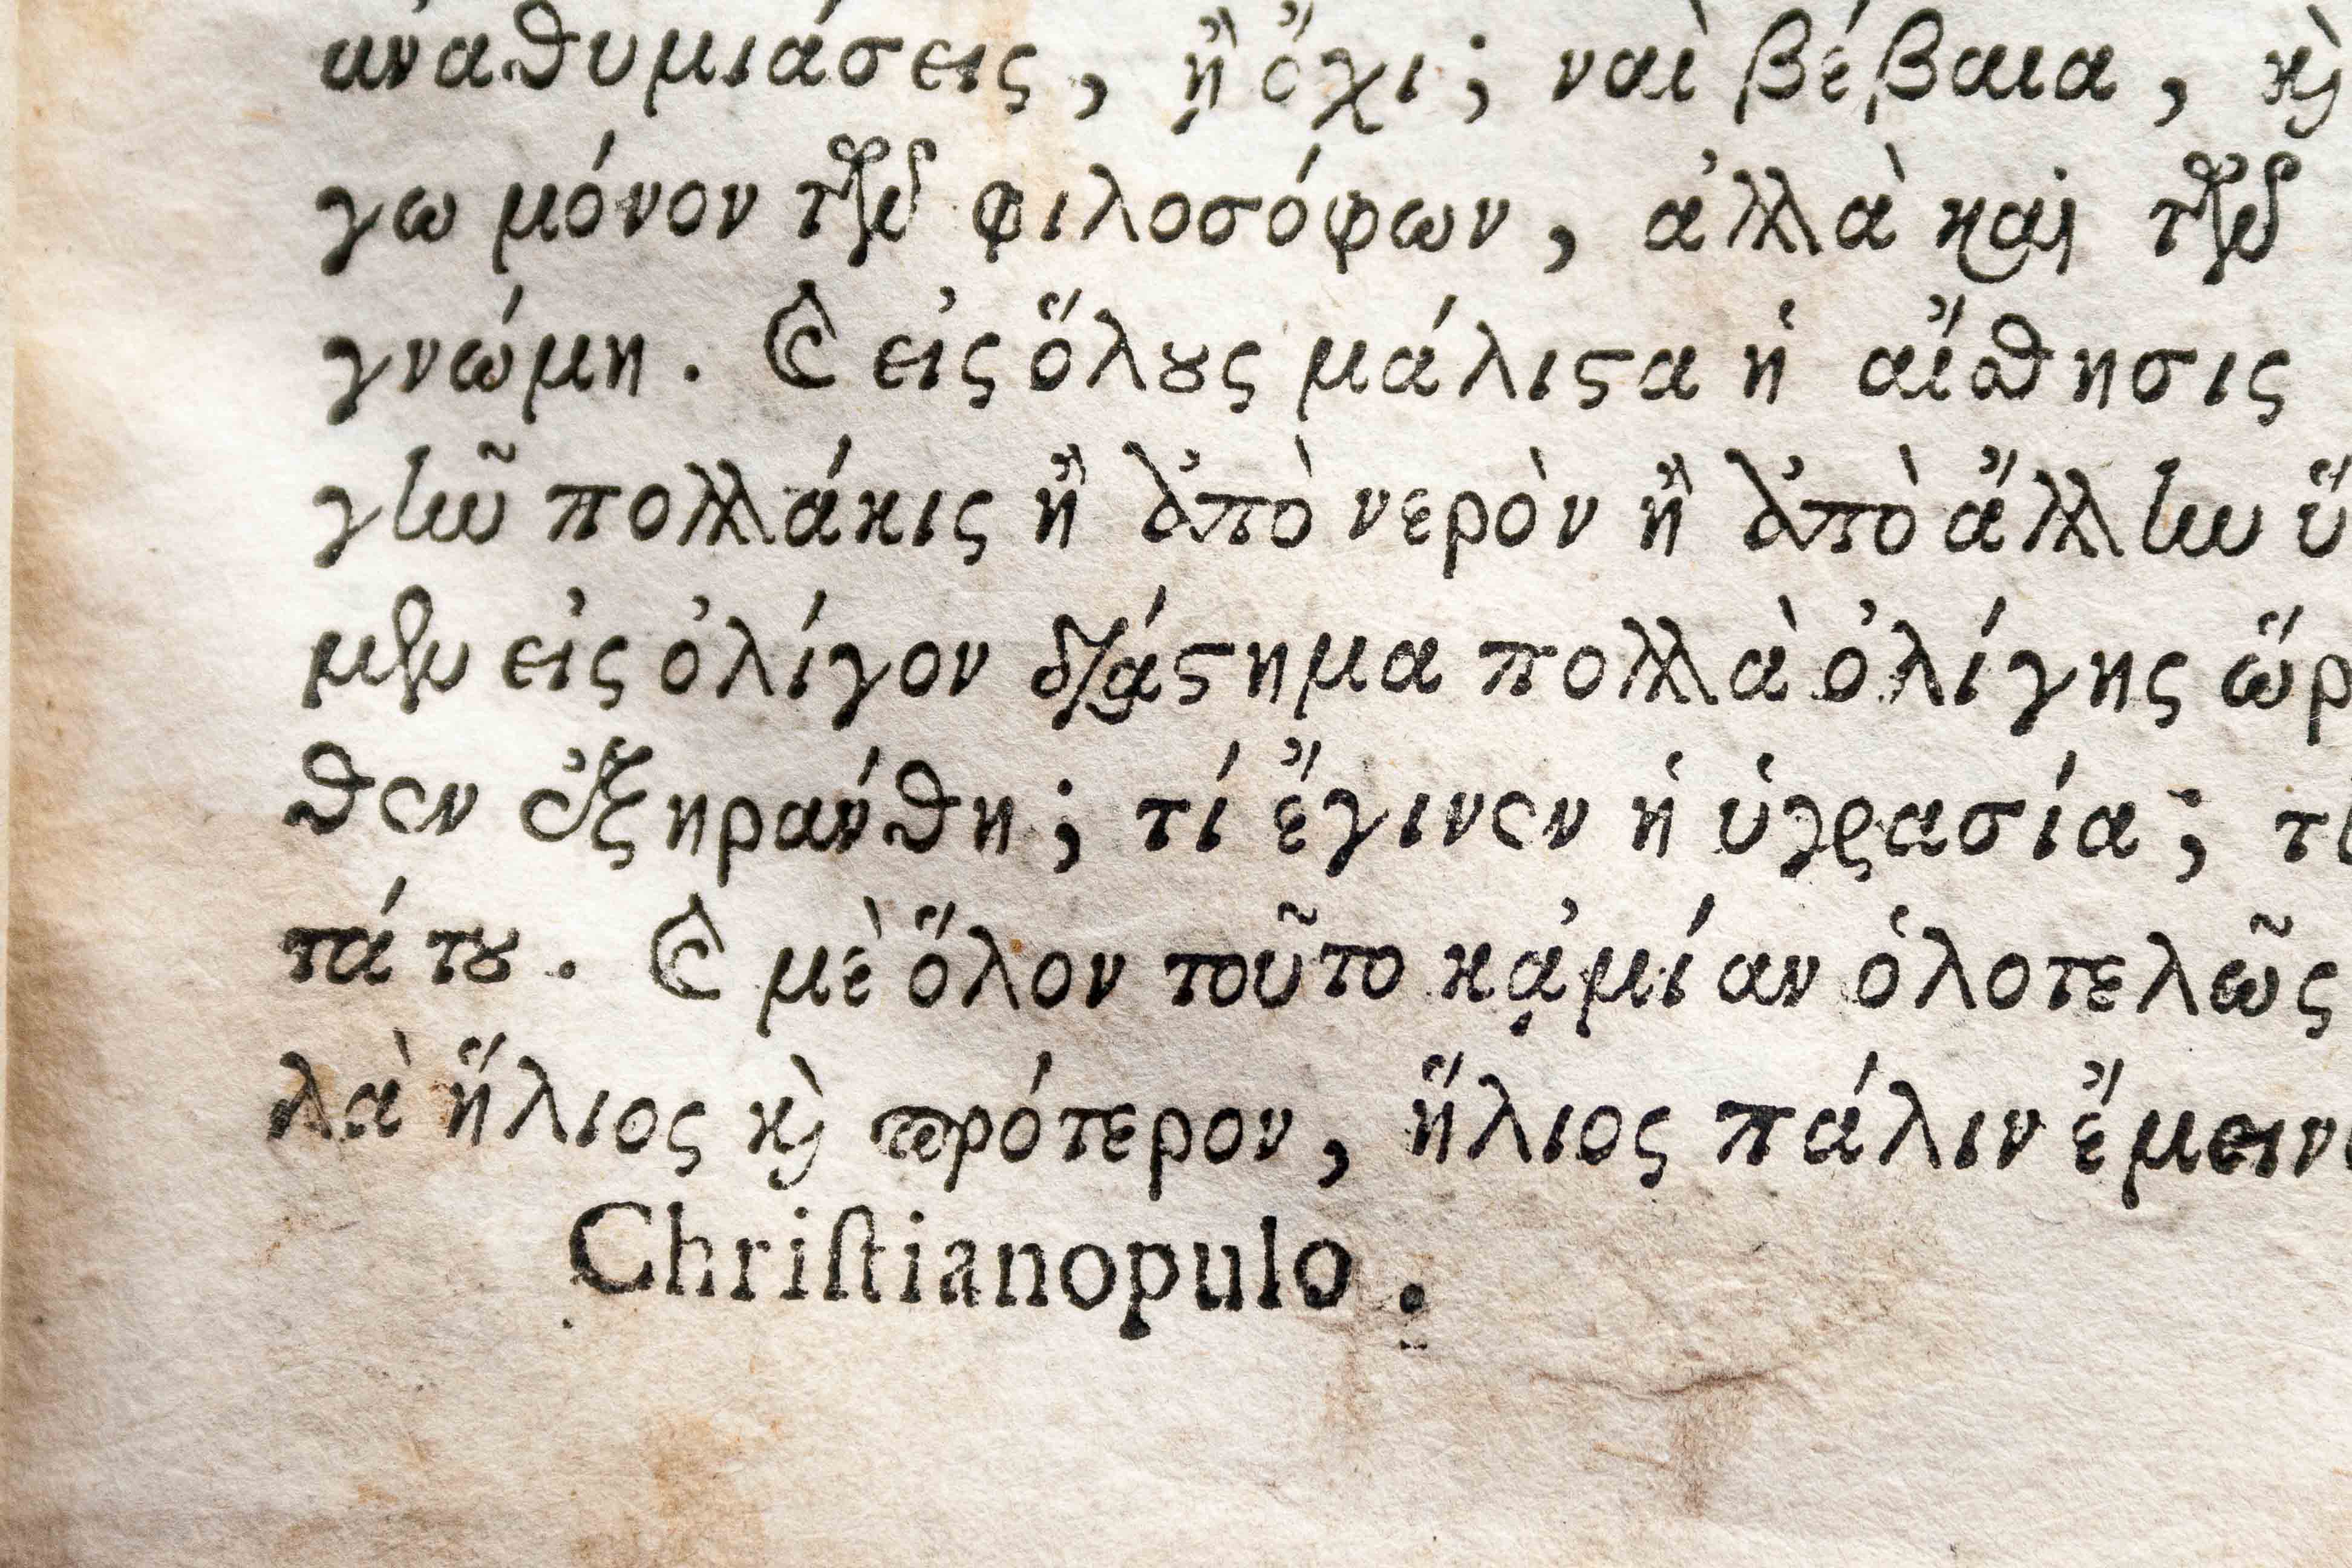 ἀναθυμιάσεις, ἢ ὄχι; ναὶ βέβαια, ϗ̀
γω μόνον τ͂ην φιλοσόφων, ἀλλὰ καὶ τ͂ην
γνώμη. Ὲ εἰς ὅλȣς μάλιϛα ἡ αἴσθησις
γῆν πολλάκις ἢ ἀπὸ νερὸν ἢ ἀπὸ ἄλλην ὑ
μεν εἰς ὀλίγον διάϛημα πολλὰ ὀλίγης ὥρ
θεν ἐξηράνθη; τί ἔγινεν ἡ ὑγρασία; τι
πάτȣ. Ὲ μὲ ὅλον τοῦτο κᾀμίαν ὁλοτελῶς
λὰ ἥλιος ϗ̀ πρότερον, ἥλιος πάλιν ἔμειν
Chriſtianopulo.